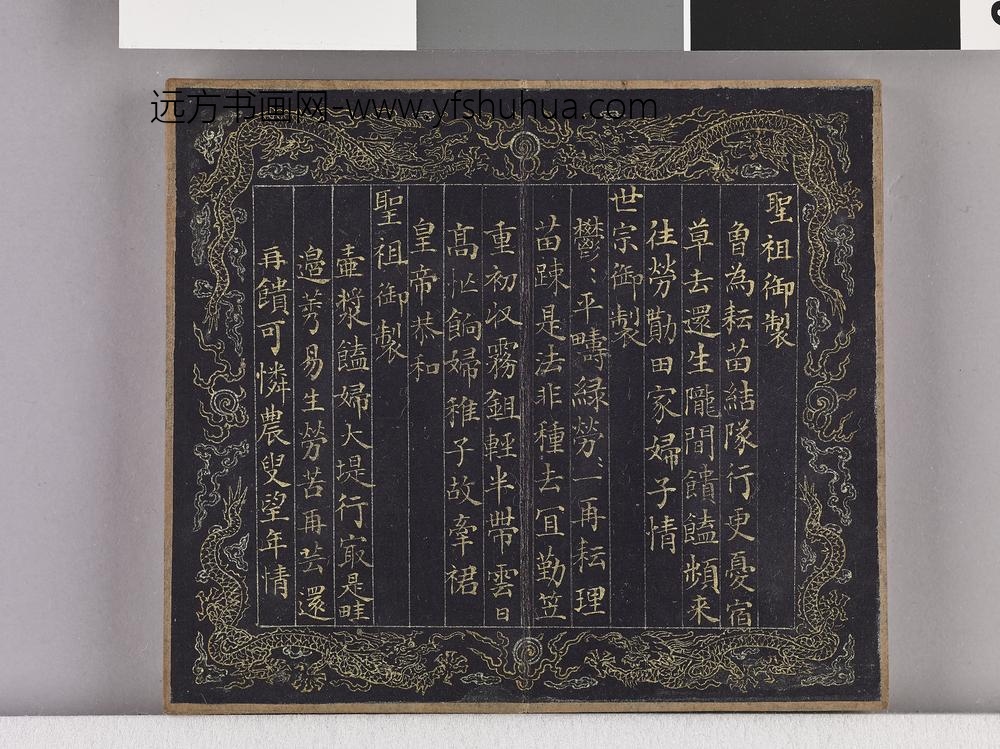 远方书画网-www.yfshuhua.com
聖祖御製
曾為耘苗結隊行更憂宿
草去還生隴間饋饁頻来
往勞勩田家婦子情
世宗御製
鬱〻平疇綠勞〻一再耘理
苗疎是法非種去宜勤笠
重初收霧鉏輕半帶雲日
高忙餉婦稚子故牽裙
皇帝恭和
聖祖御製
壷漿饁婦大堤行㝡是畦
邉莠易生勞苦再芸還
再饋可憐農叟望年情